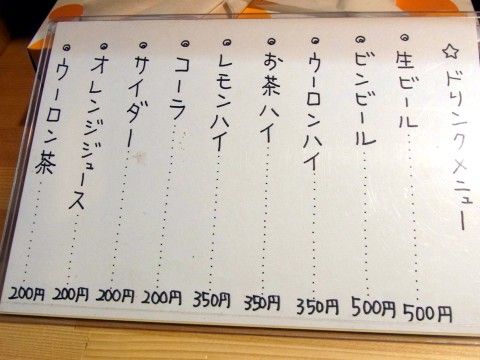 ☆ドリンクメニュー
生ビール 500円
ビンビール 500円
ウーロンハイ 350円
お茶ハイ 350円
レモンハイ 350円
コーラ 200円
サイダー 200円
オレンジジュース 200円
ウーロン茶 200円